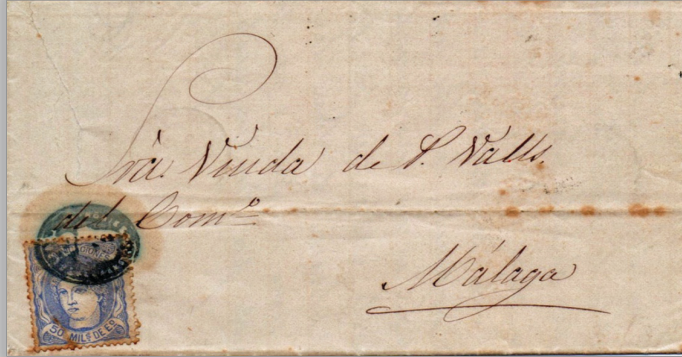 Sra. Viuda de P. Valls.
del Comº
Málaga
50 MILS DE Eº